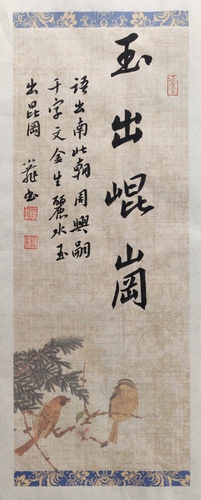 玉出崐崗
語出南北朝周興嗣
千字文金生麗水玉
出崐岡